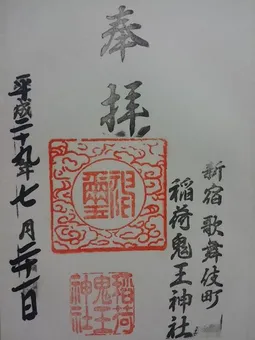 新宿 歌舞伎町
稲荷鬼王神社
奉拝
神璽
稲荷
鬼王
神社
平成二十九年七月二十一日